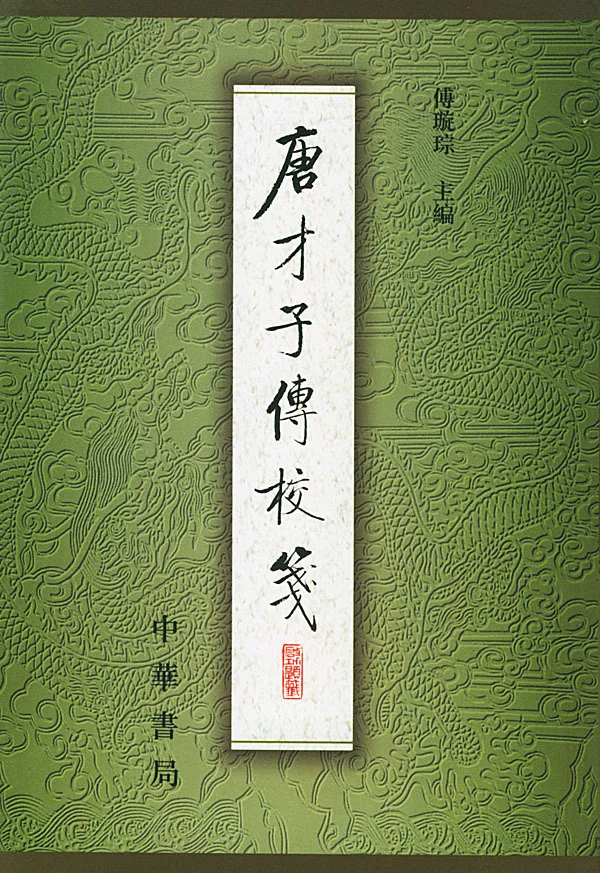 傅璇琮 主編
唐才子傳校箋
中華書局